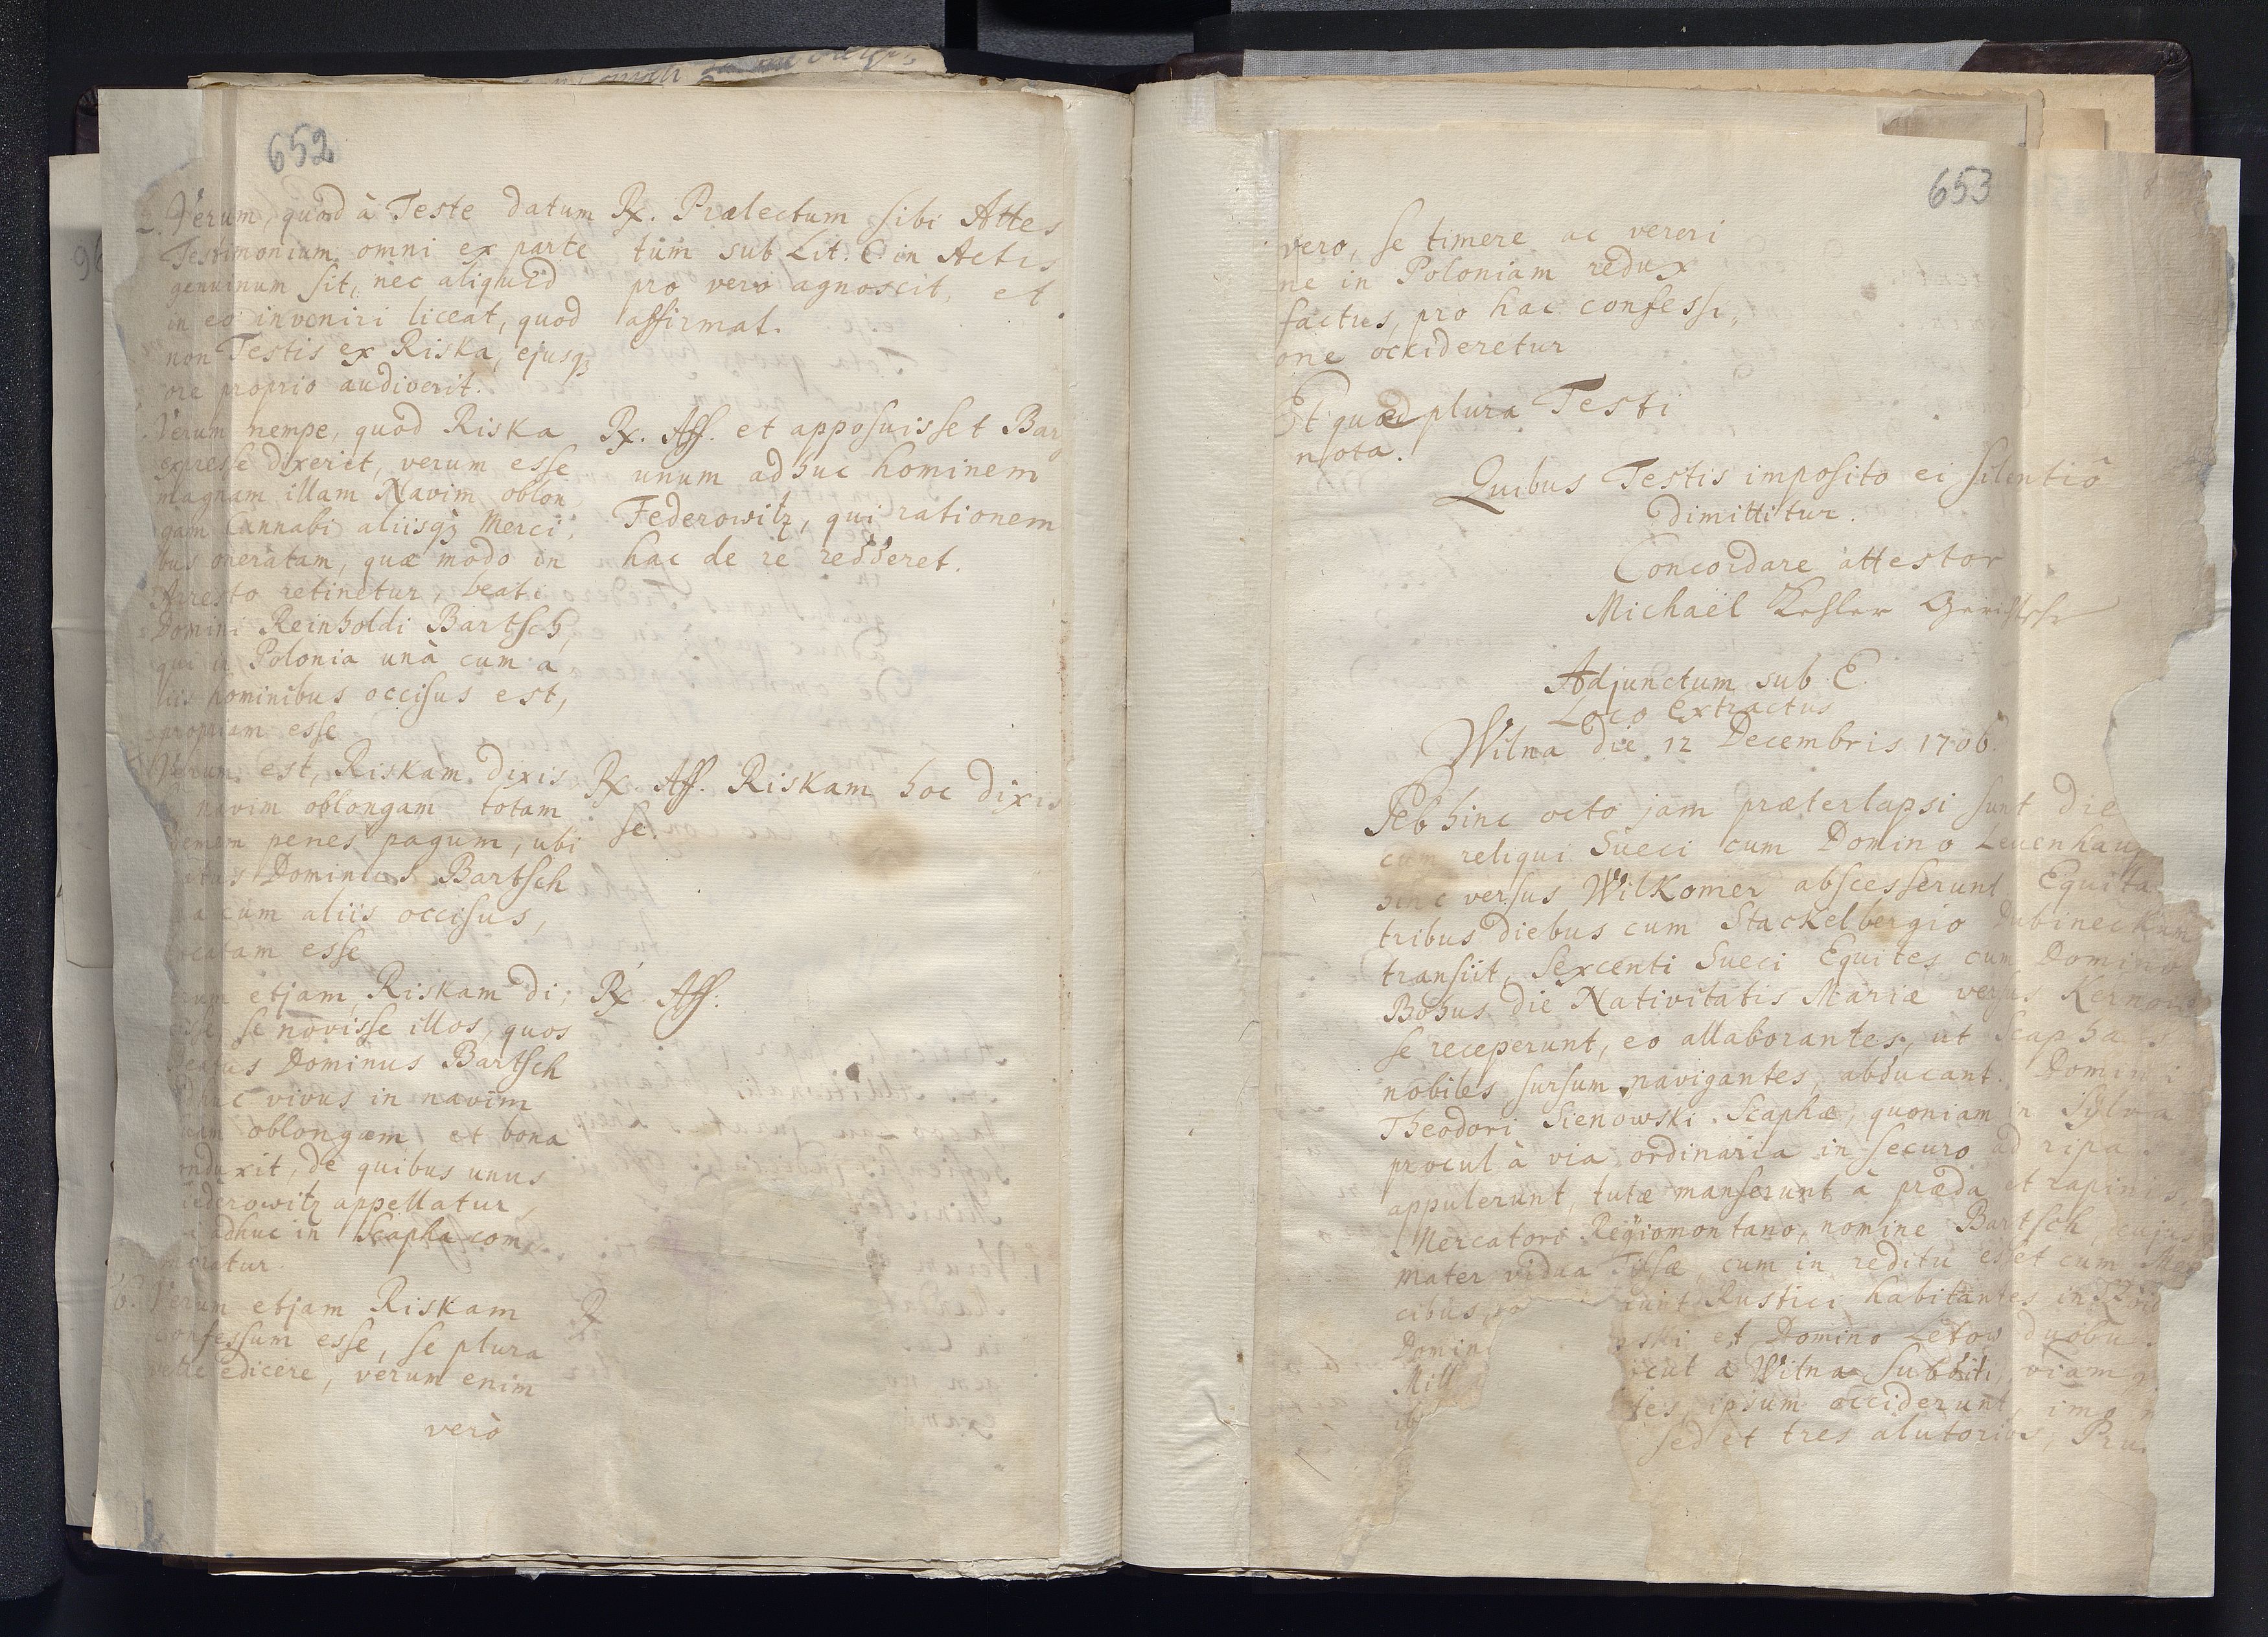 652
2. Verum, quod à Teste datum
Testimonium omni ex parte
genuinum sit, nec aliquid
in eo inveniri liceat, quod
non Testis ex Riska, ejusqȝ
ore proprio audiverit.
Rx. Prælectum sibi Attes
tum sub Lit. C in Actis
pro vero agnoscit, et
affirmat.
Verum nempe, quod Riska
expresse dixerit, verum esse
magnam illam Navim oblon
gam Cannabi aliisqȝ Merci,
bus oneratam, quæ modo in
Arresto retinetur, beati
Domini Reinholdi Bartsch,
qui in Polonia unà cum a
liis hominibus occisus est,
propriam esse
Rx. Aff. et apposuisset Bar
unum adhuc hominem
Federowitz, qui rationem
hac de re redderet.
Verum est, Riskam dixis
navim oblongam totam
demem penes pagum, ubi
Dominus Bartsch
cum aliis occisus,
catam esse
Rx. Aff. Riskam hoc dixis
se.
erum etjam Riskam di,
isse se novisse illos, quos
Beatus Dominus Bartsch
dhuc vivus in navim
uam oblongam et bona
onduxit, de quibus unus
iederowitz appellatur,
i adhuc in Scapha com
moratur.
Rx Aff.
6. Verum etjam Riskam
Confessum esse, se plura
velle edicere, verum enim
R
verò
653
vero, se timere ac vereri
ne in Poloniam redux
factus, pro hac confessi,
one occideretur
Et quæd plura Testi
nota.
Quibus Testis imposito ei silentiô
dimittitur.
Concordare attestor
Michaël Kesler
Adjunctum sub E.
Loco Extractus
Wilna die 12 Decembris 1706.
Ab hinc octo jam præterlapsi sunt die
cum reliqui Sueci cum Domino Leuenhau
hinc versus Wilkomer abscesserunt. Equita
tribus diebus cum Stackelbergio Dubineckam
transiit, Sexcenti Sueci Equites cum Domino
Bohus die Nativitatis Mariæ versus Kernow
se receperunt, eo allaborantes, ut Scaphas
nobiles sursum navigantes, abducant. Domini
Theodori Sienowski Scaphæ, quoniam in Sylva
procul à via ordinaria in securo ad ripa
appulerunt, tutæ manserunt à præda et rapinis,
Mercatori Regiomontano, nomine Bartsch, cujus
Mater vidua Tilsæ, cum in reditu esset cum Mer
cibus, iunt Rustici habitantes in
Domini oski et Domino Letow duobu
Mill icut a Wilna Subditi, viam
ib tes, ipsum occiderunt, imo n
sed et tres alutorios, Pru